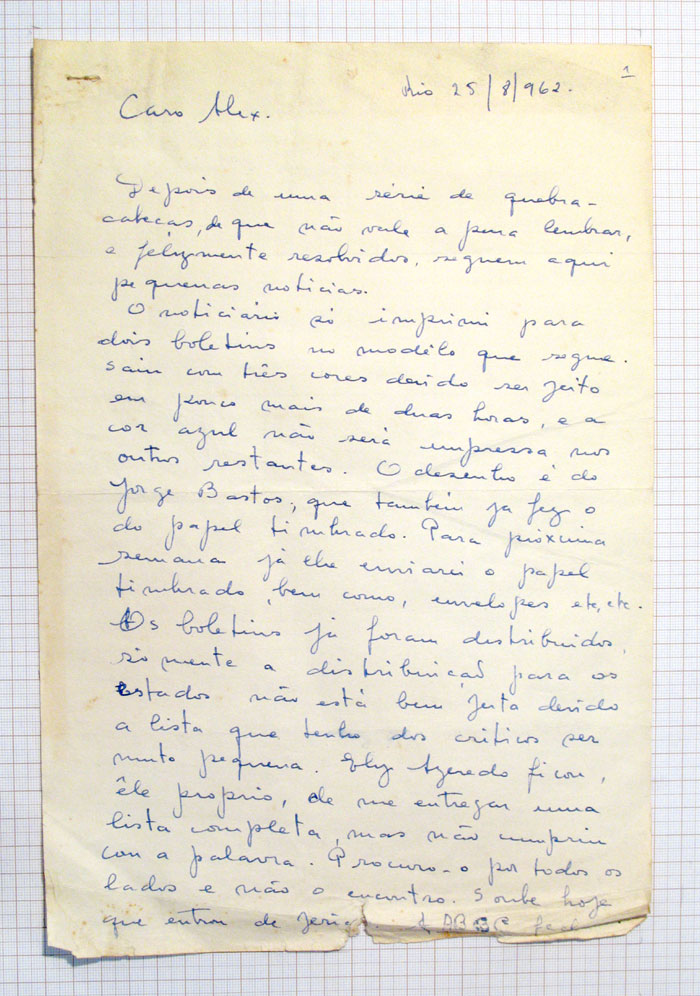 1
Rio 25/8/962.
Caro Alex.
Depois de uma série de quebra-
cabeças, de que não vale a pena lembrar,
e felizmente resolvidos, seguem aqui
pequenas noticias.
O noticiário só imprimi para
dois boletins no modêlo que segue.
Sain com três cores devido ser feito
em pouco mais de duas horas, e a
cor azul não será impressa nos
outros restantes. O desenho é do
Jorge Bastos, que também já fez o
do papel timbrado. Para próxima
semana já lhe enviarei o papel
timbrado, bem como, envelopes etc, etc.
Os boletins já foram distribuidos,
sómente a distribuição para os
estados não está bem feita devido
a lista que tenho dos criticos ser
muto pequena. Ely Azeredo ficou,
êle proprio, de me entregar uma
lista completa, mas não cumpriu
con a palavra. Procuro-o por todos os
lados e não o encontro. Soube hoje
que entrou de férias. A